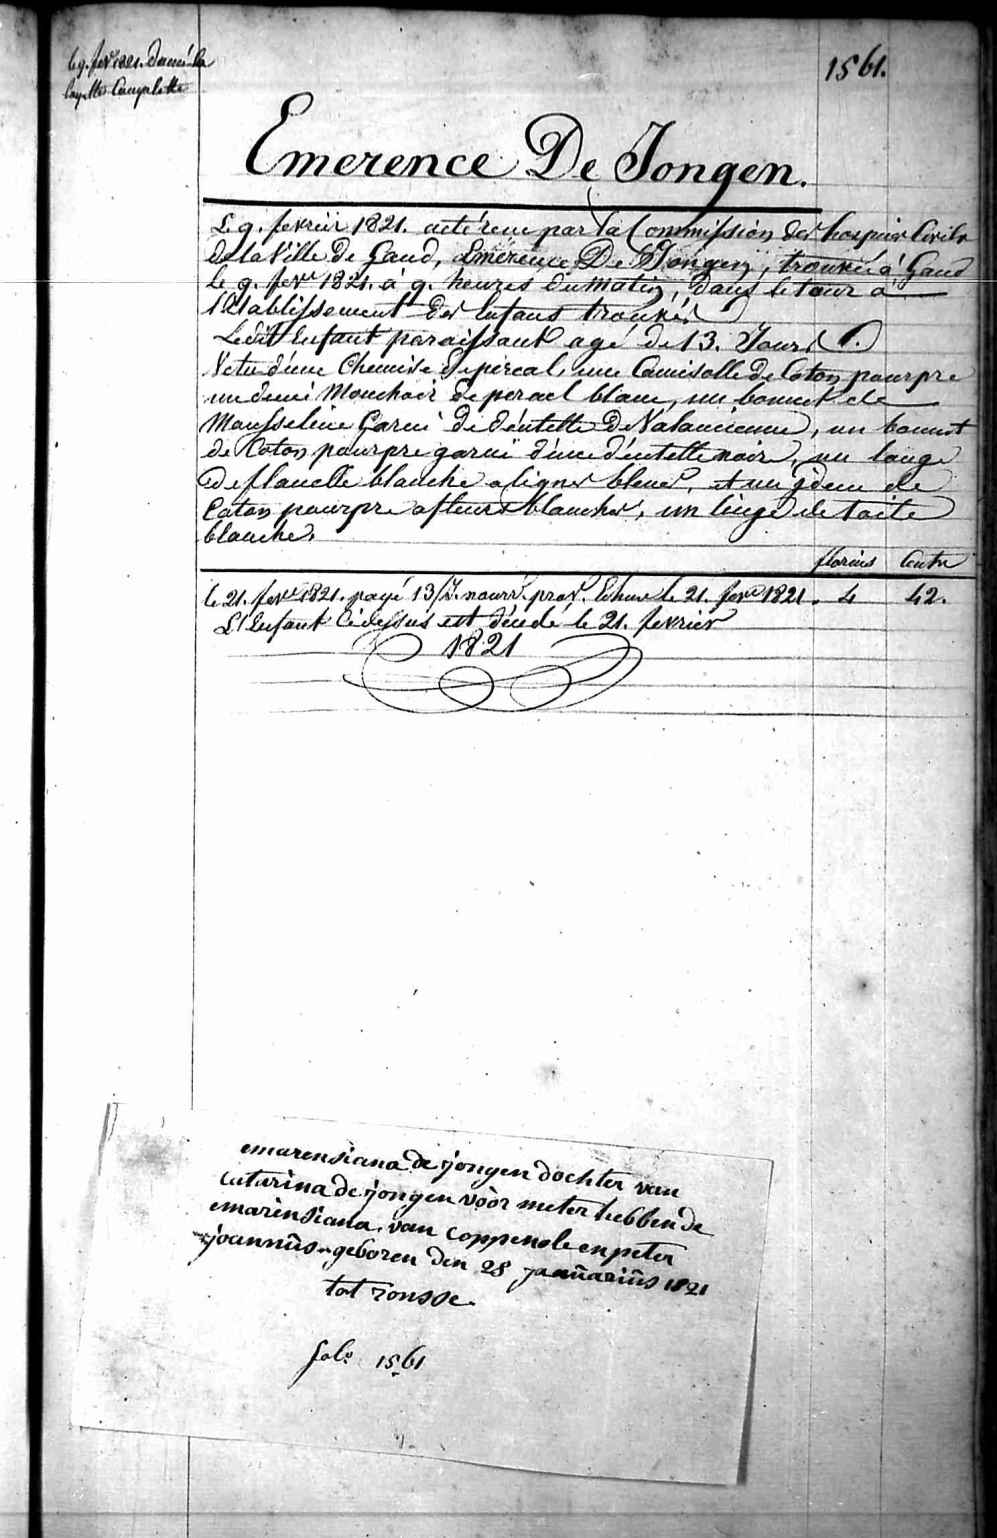 le 9. fevr 1821. Donné la
layette Complette
1561.
Emerence De Jongen.
Le 9. fevrier 1821. a été recu par la Commission des hospices Civils
de la Ville de Gand, Emérence De Jongen, trouvée à Gand
le 9. fevr 1821. à 9. heures du matin, dans le tour à
l'Etablissement des Enfans trouvés
Ledit Enfant paraissant agé de 13. Jours.
Vetu d'une Chemise de percal, une Camisolle de Coton pourpre
un demi Mouchoir de percael blanc, un bonnet de
Mousseline Garni de déntelle De Valancienne, un bonnet
de Coton pourpre garni d'une déntelle noire, un lange
de flanelle blanche a lignes bleues, et un idem de
Coton pourpre a fleurs blanches, un linge de toile
blanche.
florins Cents
le 21. fevr 1821. payé 13/J. nourr. prov. Echu le 21. fevr 1821. 4 42.
L'Enfant Cidessus est décédé le 21. fevrier
1821
emarensiana de jongen dochter van
Catarina de jongen voor meter hebbende
emarensiana van coppenole en peter
joannus geboren den 28 januarius 1821
tot ronsse.
folo 1561